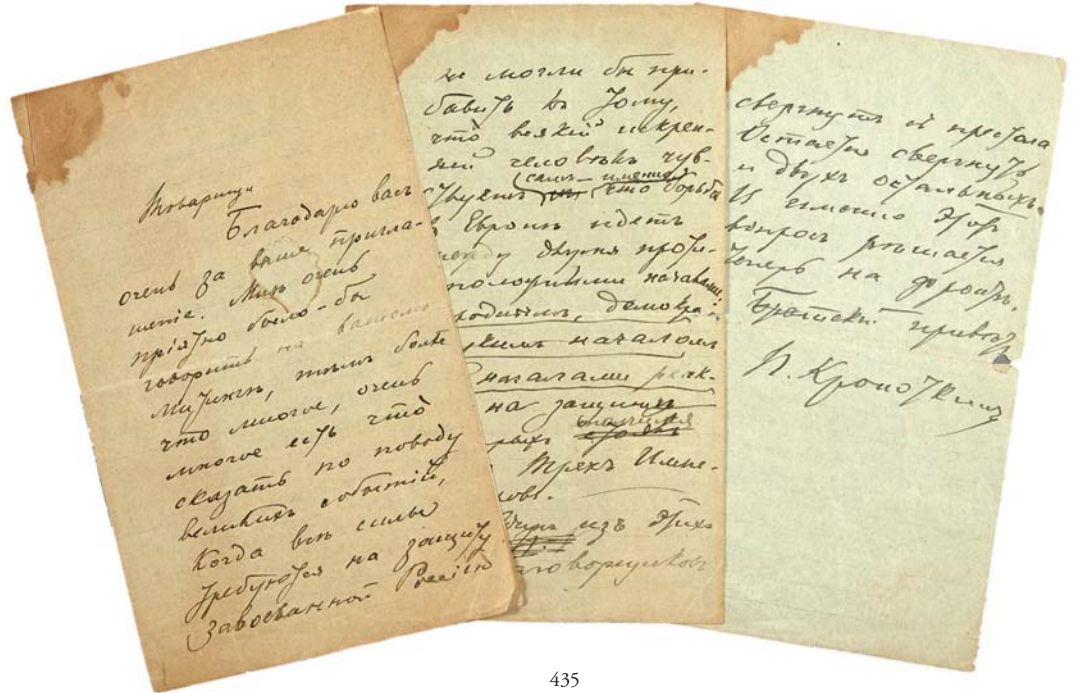 Товарищи
Благодарю васъ
очень за ваше пригла-
шеніе. Мнѣ очень
пріятно было-бы
говорить на вашемъ
митингѣ, тѣмъ болѣе
что многое, очень
многое есть что
сказать по поводу
великихъ событій,
Когда всѣ силы
требуются на защиту
завоеванной Россіею
не могли бы при-
бавить къ тому,
что всякій искрен-
ній человѣкъ чув-
ствуетъ самъ – именно
что борьба
Европѣ идетъ
между двумя проти-
началами,
демокра-
началомъ
началами реак-
на защиту
Трехъ Импе-
изъ этихъ
заговорщиковъ
свергнутъ съ престола
Остается свергнуть
и двухъ остальныхъ.
И именно этотъ
вопросъ рѣшается
теперь на фронтѣ.
Братскій привѣтъ
П. Кропоткинъ
435